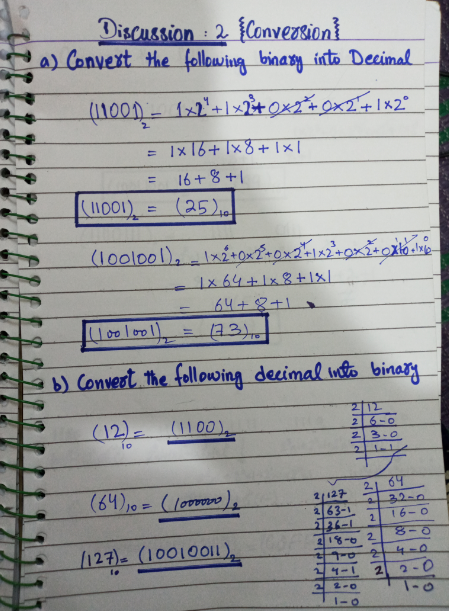 Discussion : 2 {Conversion}
a) Convert the following binary into Decimal
(11001)₂ = 1×2⁴+1×2³+0×2²+0×2¹+1×2⁰
= 1×16+1×8+1×1
= 16+8+1
(11001)₂ = (25)₁₀
(1001001)₂ = 1×2⁶+0×2⁵+0×2⁴+1×2³+0×2²+
= 1×64+1×8+1×1
= 64+8+1
(1001001)₂ = (73)₁₀
b) Convert the following decimal into binary
(12)₁₀ = (1100)₂
2|12
2|6-0
2|3-0
2|1-1
(64)₁₀ = (1000000)₂
(127)₁₀ = (10010011)₂
2|127
2|63-1
2|36-1
2|18-0
2|9-0
2|4-1
2|2-0
1-0
2|64
2|32-0
2|16-0
2|8-0
2|4-0
2|2-0
1-0